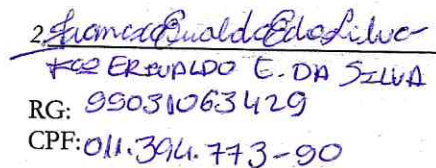 2. Francisco Erivaldo E da Silva
Fco ERIVALDO E. DA SILVA
RG: 99031063429
CPF: 011.394.773-90